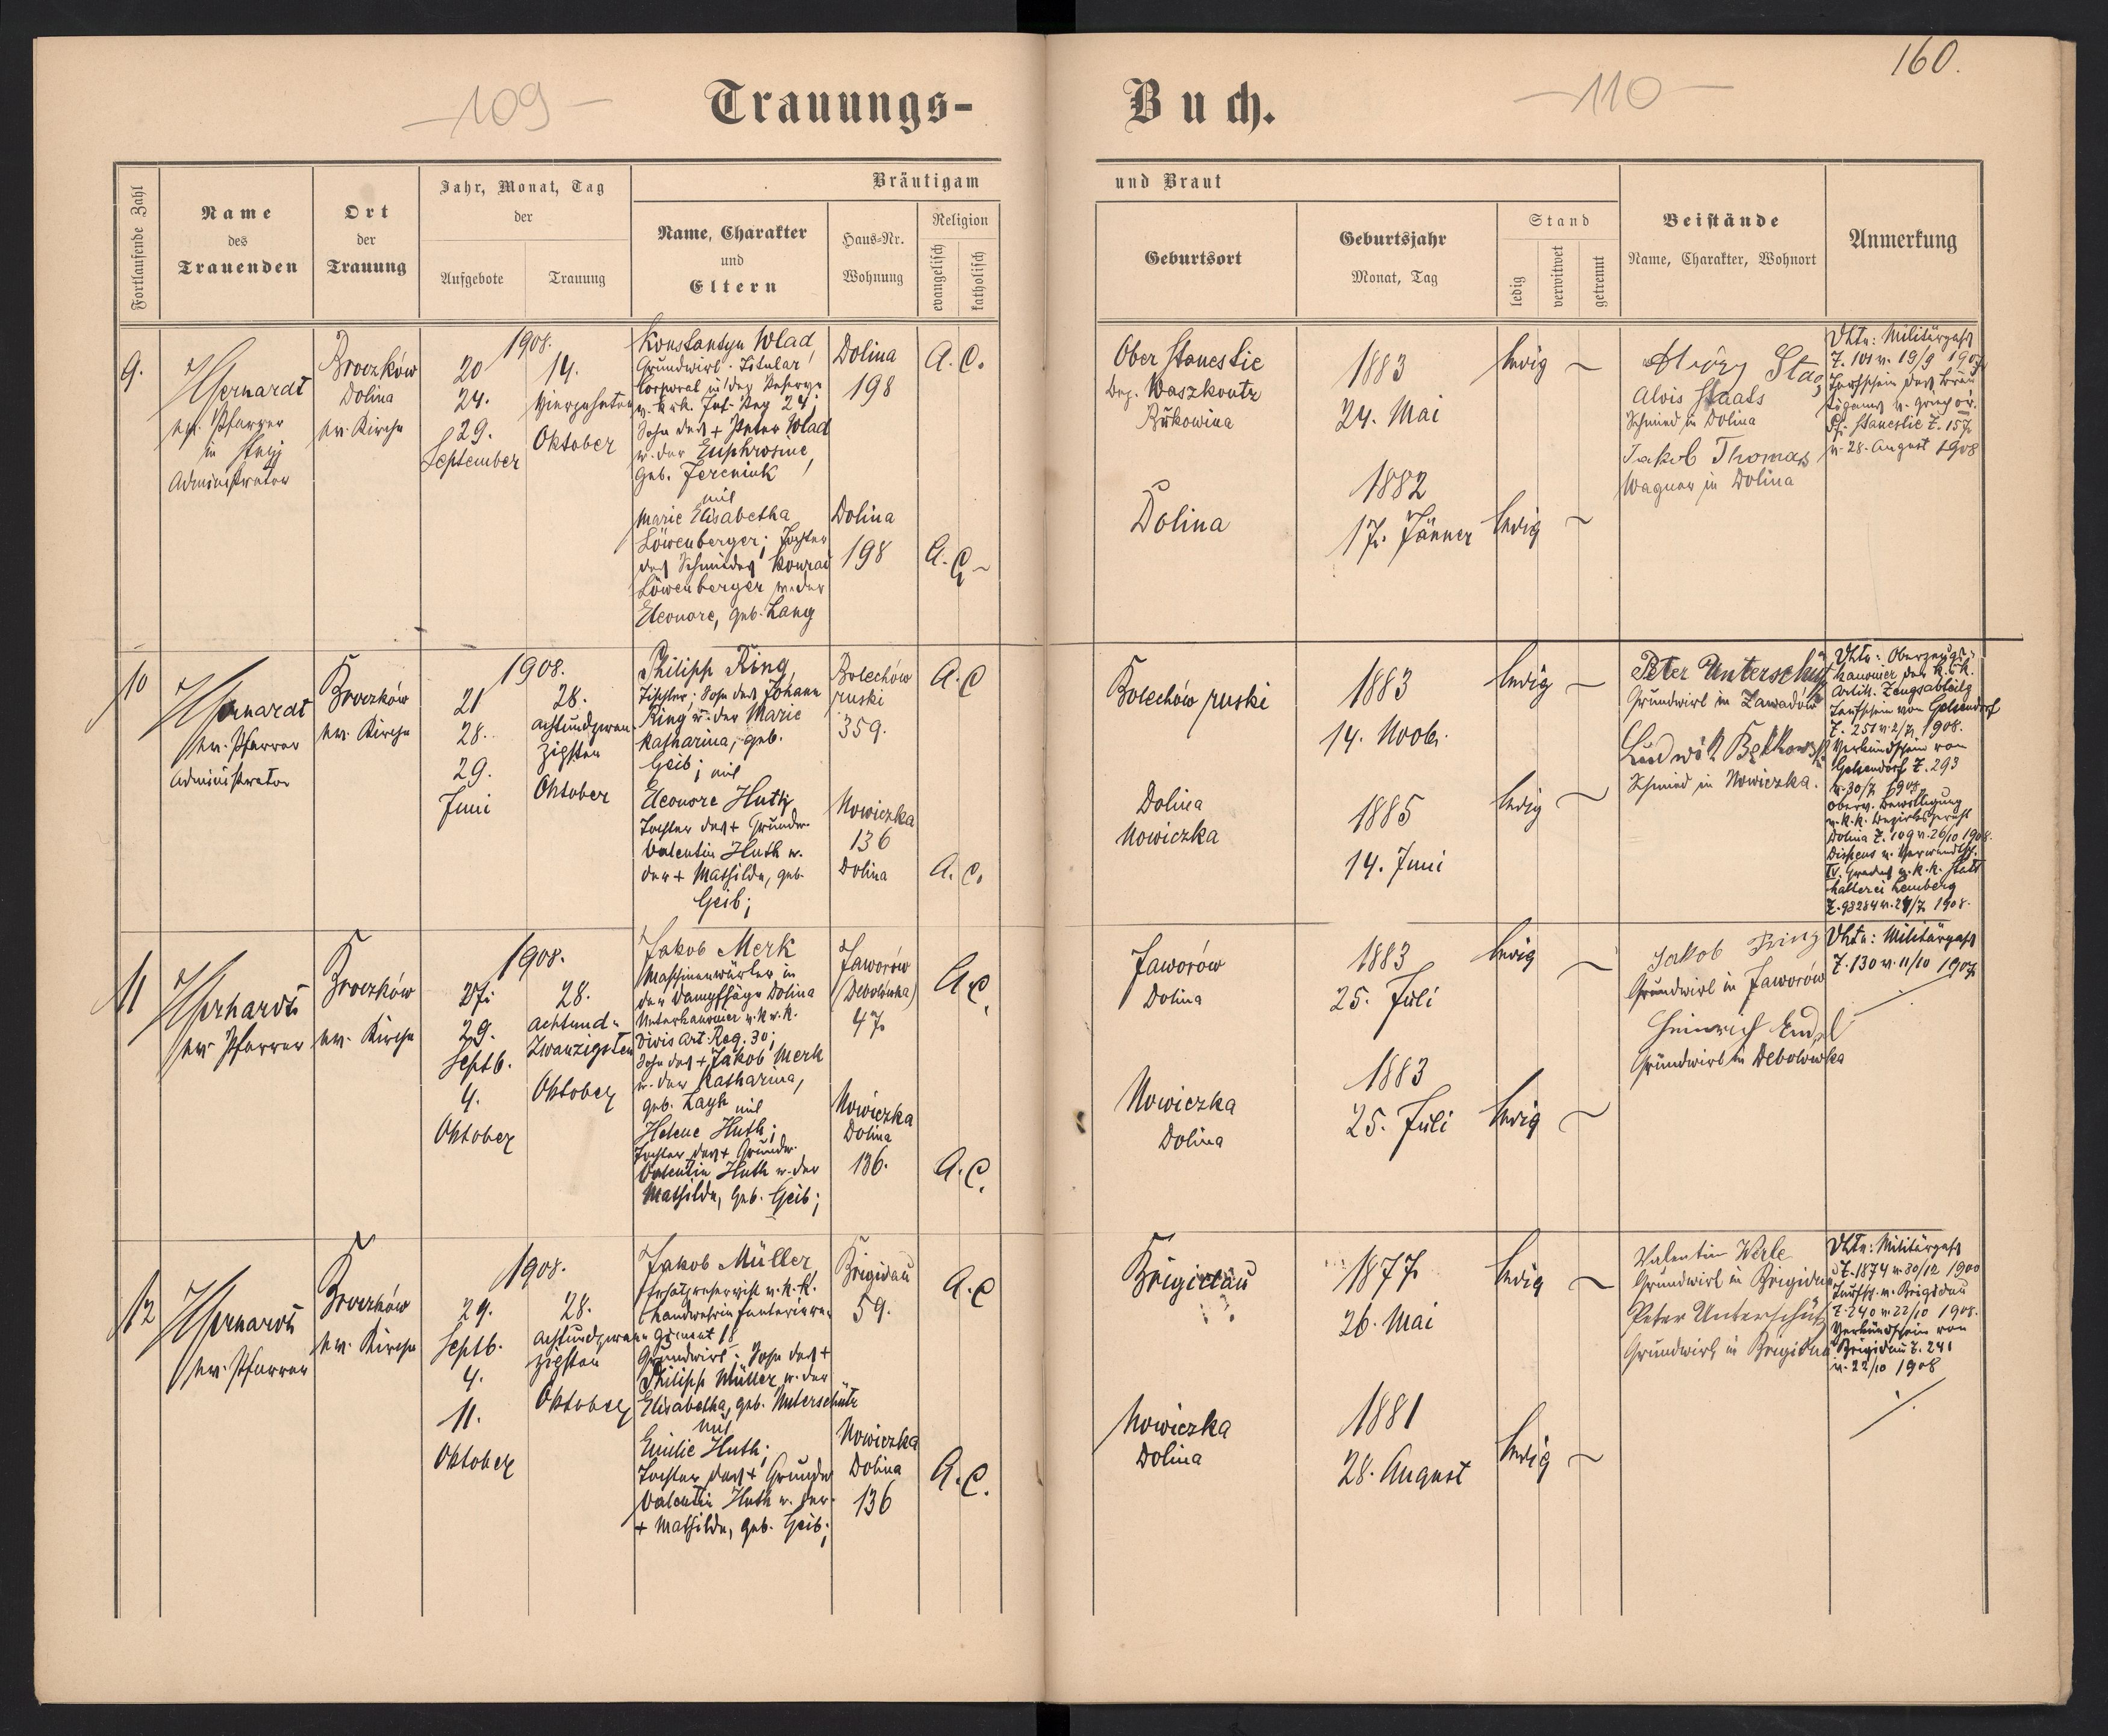 160.
-109-
-110-
Trauungs-
Buch.
Fortlaufende Zahl
Name
des
Trauenden
Ort
der
Trauung
Jahr, Monat, Tag
der
Aufgebote
Trauung
Bräutigam
Name, Charakter
und
Eltern
Haus-Nr.
Wohnung
Religion
evangelisch
katholisch
und Braut
Geburtsort
Geburtsjahr
Monat, Tag
Stand
ledig
verwitwet
getrennt
Beistände
Name, Charakter, Wohnort
Anmerkung
9.
ev. Pfarrer
in Stryj
Administrator
Broczków
Dolina
ev. Kirche
1908.
20
24.
29.
September
14.
Vierzehnten
Oktober
Konstantyn Wlad,
Grundwirt. Titular
Corporal in der Reserve
v. k.u.k. Inf. Reg 24;
Sohn des + Peter Wlad
u. der Euphrosine,
geb. Fereniuk
mit
Marie Elisabetha
Löwenberger; Tochter
des Schmides Konrad
Löwenberger u. der
Eleonore, geb. Lang
Dolina
198
Dolina
198
A. C.
A. C.
Ober Stanestie
Bez. Waszkoutz
Bukowina
Dolina
1883
24. Mai
1882
17. Jänner
ledig
ledig
Alois Staats
Schmied in Dolina
Jakob Thomas
Wagner in Dolina
Militärpaß
Z. 101 v. 19/9 1907
Taufschein des Bräu
tigams v. griech or.
Pf. Stanestie Z. 157
v. 28. August 1908
10
ev. Pfarrer
Administrator
Broczków
ev. Kirche
1908.
21
28.
29.
Juni
28.
achtundzwan
zigsten
Oktober
Philipp Ring,
Tischler; Sohn des Johann
Ring u. der Marie
Katharina, geb.
Geib; mit
Eleonore Huth,
Tochter des + Grundw.
Valentin Huth u.
der + Mathilde, geb.
Geib;
Bolechów
ruski
359.
Nowiczka
136
Dolina
A. C
A. C.
Bolechów ruski
Dolina
Nowiczka
1883
14. Novb.
1885
14. Juni
ledig
ledig
Peter Unterschütz
Grundwirt in Zawadów
Schmied in Nowiczka.
Taufschein von Gelsendorf
Z. 251 v. 2/7 1908.
Verkündschein von
Gelsendorf Z. 293
v. 30/7 1908
oberv. Bewilligung
v. k.k. Bezirksgericht
Dolina Z. 109 v. 26/10 1908.
Dispens v. Verwandtsch.
IV. Grades v. k. k. Statt
halterei Lemberg
Z. 93284 v. 27/7 1908.
11
ev. Pfarrer
Broczków
ev. Kirche
1908.
27.
29.
Septb.
4.
Oktober
28.
achtund-
zwanzigsten
Oktober
Jakob Merk
Maschinenwärter in
der Dampfsäge Dolina
Unterkanonier v. k. u. k.
Divis Art. Reg. 30;
Sohn des + Jakob Merk
u. der Katharina,
geb. Layh mit
Helene Huth;
Tochter des + Grundw.
Valentin Huth u. der
Mathilde, geb. Geib;
Jaworów
(Debolówka)
47
Nowiczka
Dolina
136.
A. C.
A. C.
Jaworów
Dolina
Nowiczka
Dolina
1883
25. Juli
1883
25. Juli
ledig
ledig
Jakob Ring
Grundwirt in Jaworów
Heinrich
Grundwirt in Debolówka
Militärpaß
Z. 130 v. 11/10 1907
12
ev. Pfarrer
Broczków
ev. Kirche
1908.
29.
Septb.
4.
11.
Oktober
28.
achtundzwan
zigsten
Oktober
Jakob Müller,
Ersatzreservist v. k. k.
Landwehrinfanteriere-
giment 18
Grundwirt; Sohn des +
Philipp Müller u. der
Elisabetha, geb. Unterschütz
mit
Emilie Huth;
Tochter des + Grundw
Valentin Huth u. der
+ Mathilde, geb. Geib;
Brigidau
59.
Nowiczka
Dolina
136
A. C
A. C.
Brigidau
Nowiczka
Dolina
1877
26. Mai
1881
28. August
ledig
ledig
Valentin Werle
Grundwirt in Brigidau
Peter Unterschütz
Grundwirt in Brigidau
Militärpaß
Z. 1874 v. 30/12 1900
Taufsch. v. Brigidau
Z. 240 v. 22/10 1908.
Verkündschein von
Brigidau Z. 241
v. 22/10 1908